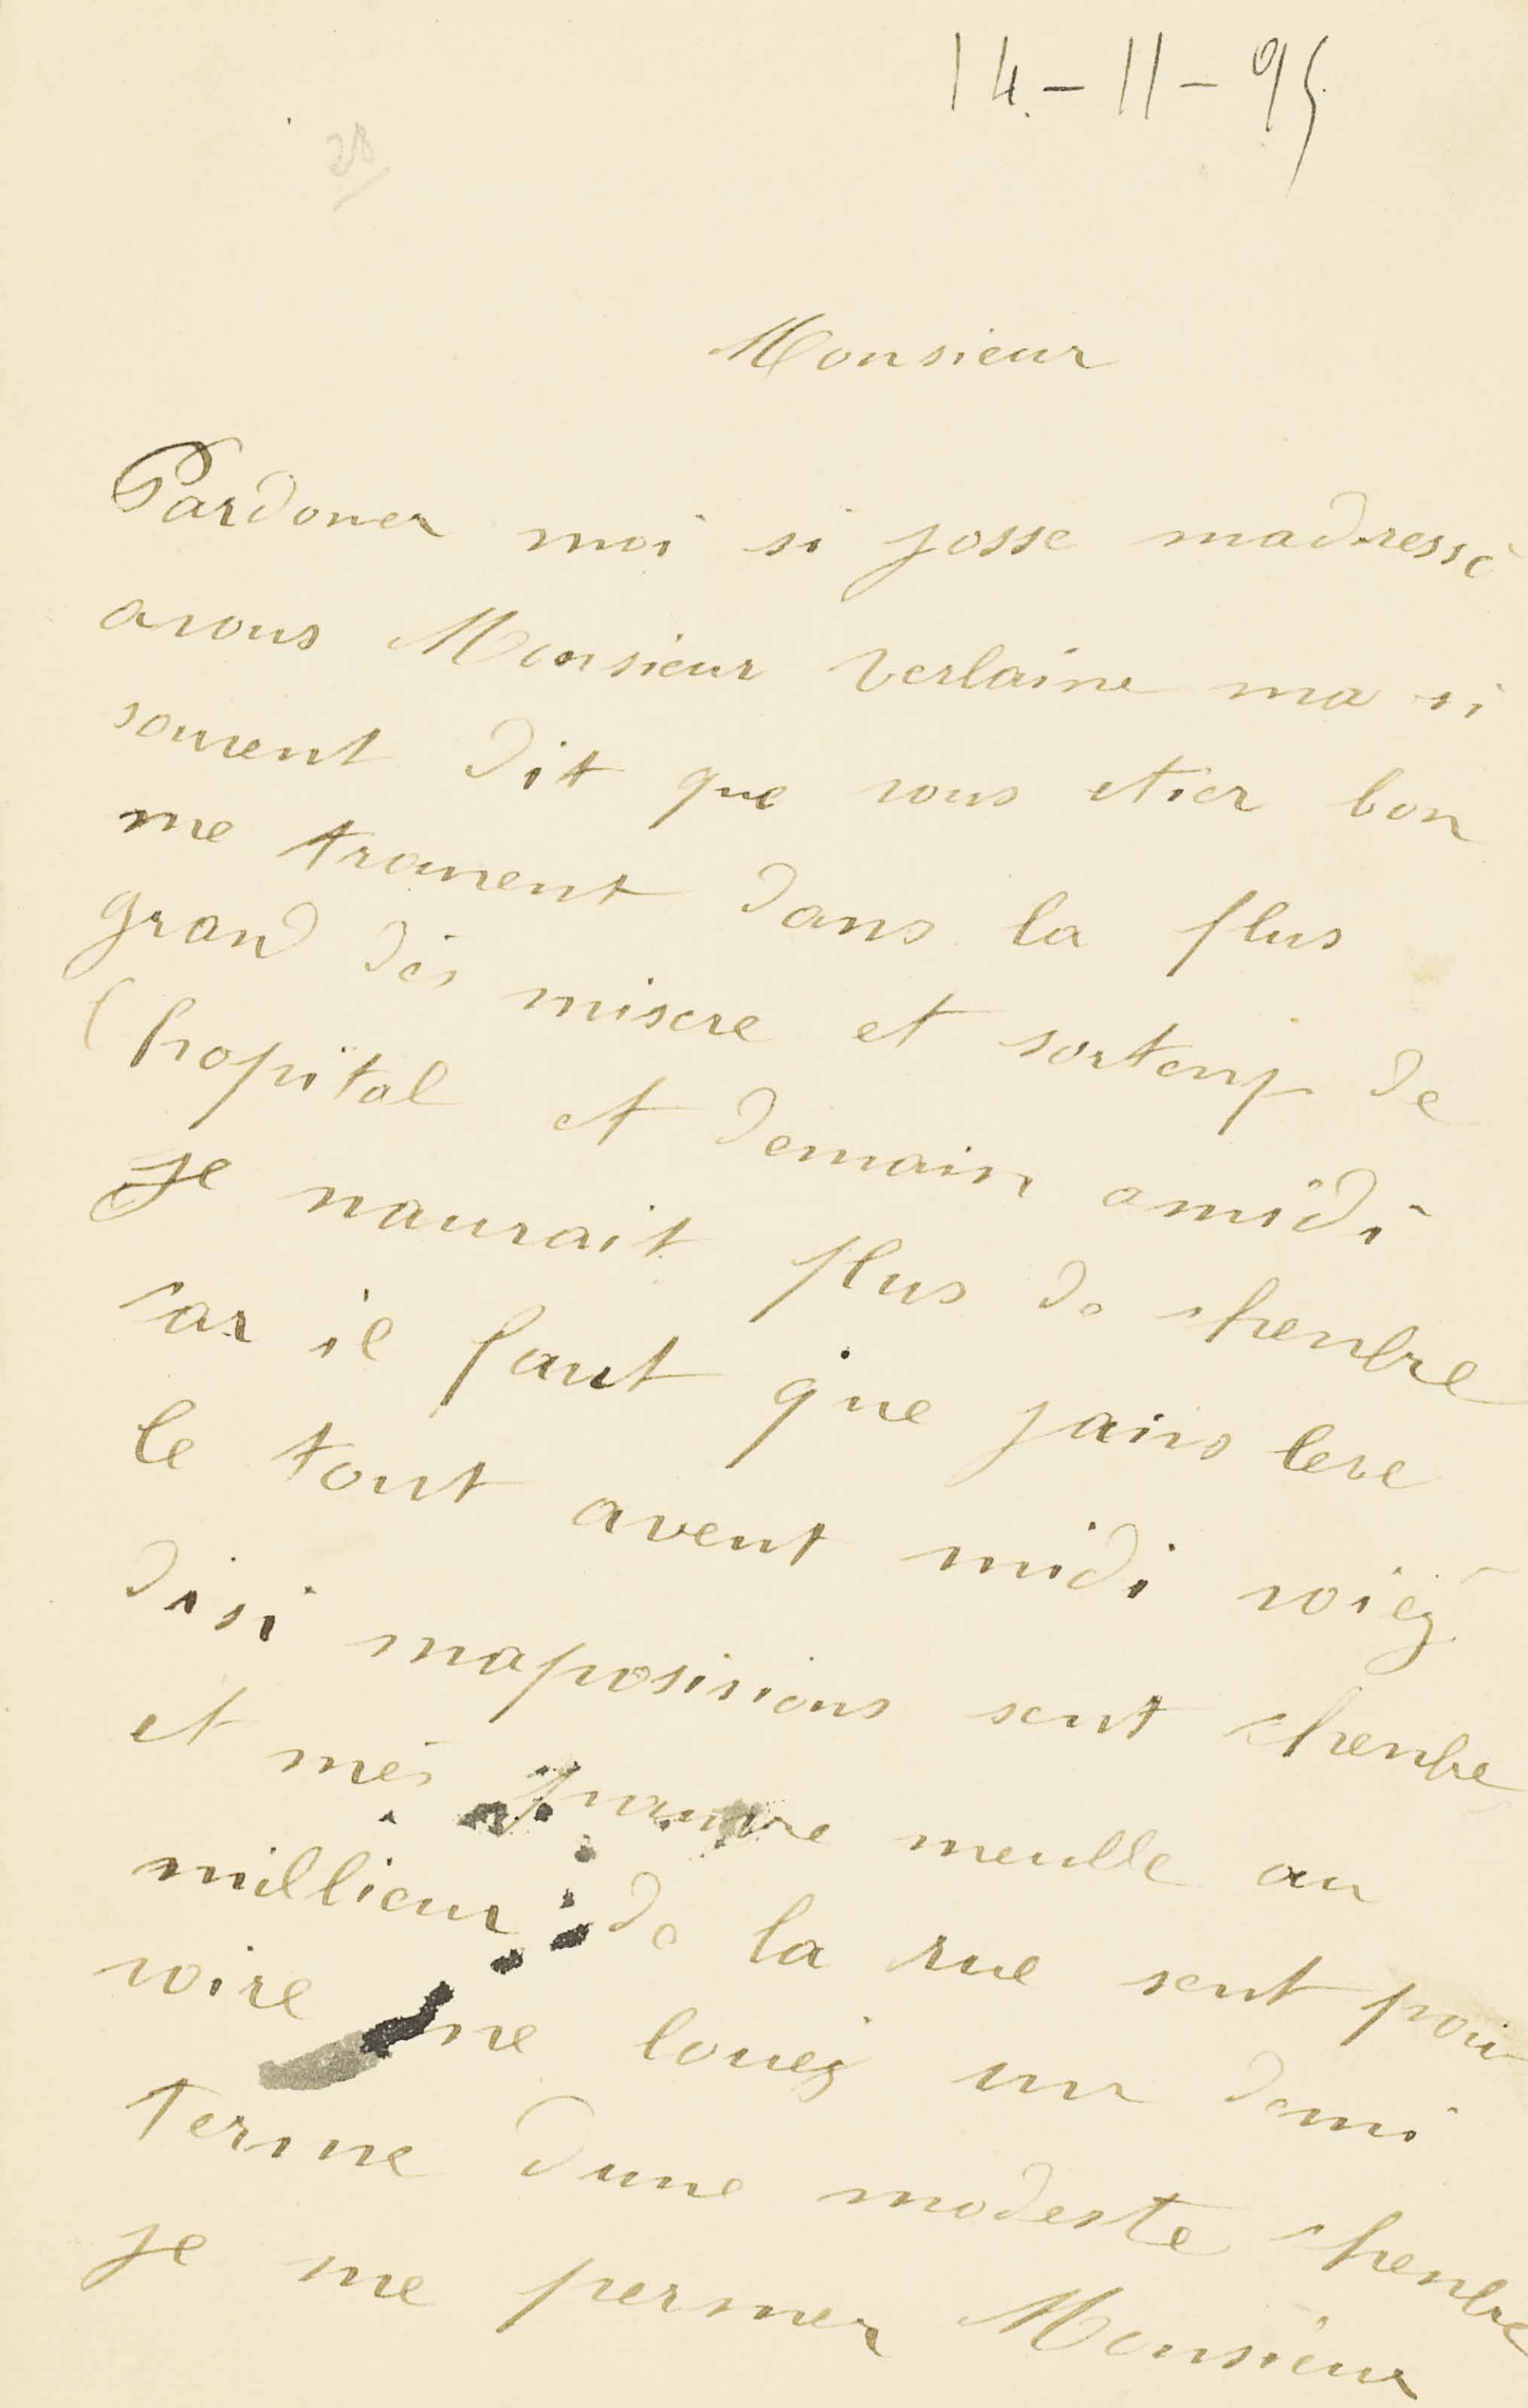 14-11-95
28
Monsieur
Pardoner moi si josse madressé
avous Monsieur Verlaine ma si
souvent dit que vous etier bon
me trouvent dans la plus
grand dés misere et sorteny de
lhopital et demain amidi
Je naurait plus de chenbre
car il faut que jains leve
le tout avent midi voiéz
disi maposisions sent chenbre
et més pauvre meuble au
millieur de la rue sent pou
voire me louéz un demi
terme dune modeste chenbre
je me permer Monsieur